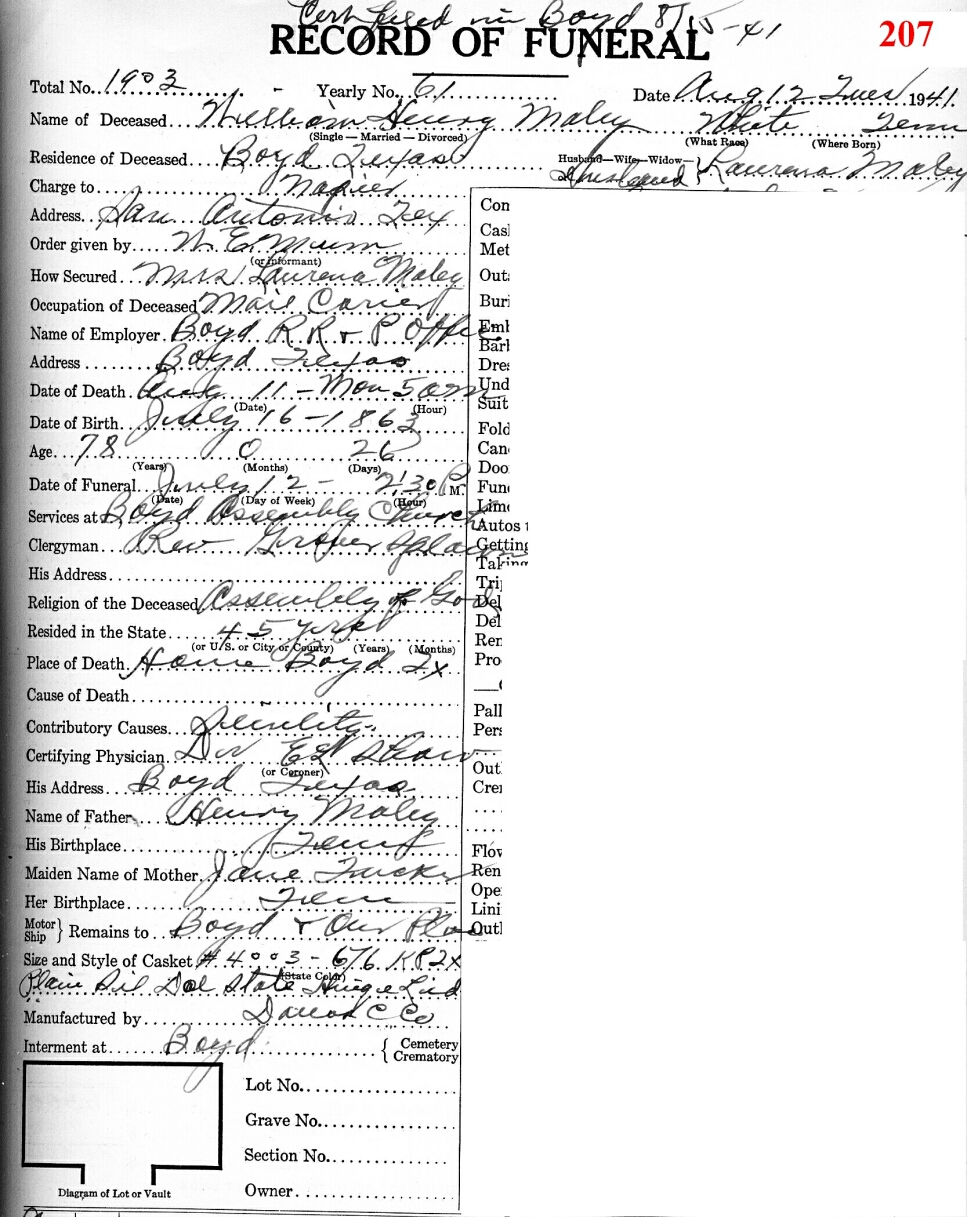 Cert filed in Boyd 8/15-41
RECORD OF FUNERAL
207
Total No. 1903 - Yearly No. 61 Date Aug 12 Tues 1941
Name of Deceased William Henry Maley White Tenn
(Single — Married — Divorced) (What Race) (Where Born)
Residence of Deceased Boyd Texas Husband—Wife—Widow— } Laurena Maley
Charge to Napier
Address San Antonio Tex
Order given by
(or informant)
How Secured Mrs Laurena Maley
Occupation of Deceased Mail Carier
Name of Employer Boyd R R & P Office
Address Boyd Texas
Date of Death Aug 11 - Mon 5 am
(Date) (Hour)
Date of Birth July 16 - 1863
Age 78 0 26
(Years) (Months) (Days)
Date of Funeral July 12 - 2:30 P M.
(Date) (Day of Week) (Hour)
Services at Boyd Assembly Church
Clergyman Rev Grover
His Address
Religion of the Deceased Assembly of God
Resided in the State 45 yrs
(or U.S. or City or County) (Years) (Months)
Place of Death Home Boyd Tx
Cause of Death
Contributory Causes Senility
Certifying Physician Dr Shaw
(or Coroner)
His Address Boyd Texas
Name of Father Henry Maley
His Birthplace Tenn
Maiden Name of Mother Jane Tucker
Her Birthplace Tenn
Motor Ship } Remains to Boyd & Our Place
Size and Style of Casket # 4003 - 6/6 KP2X
(State Color)
Plain Sil State Hinge Lid
Manufactured by C Co
Interment at Boyd { Cemetery Crematory
Lot No.
Grave No.
Section No.
Owner
Diagram of Lot or Vault
Con
Cas
Met
Out
Buri
Emb
Bar
Dre
Und
Suit
Fold
Can
Doo
Fun
Lim
Autos
Getting
Taking
Tri
Del
Del
Ren
Pro
Pall
Pers
Out
Cre
Flow
Ren
Ope
Lini
Outl